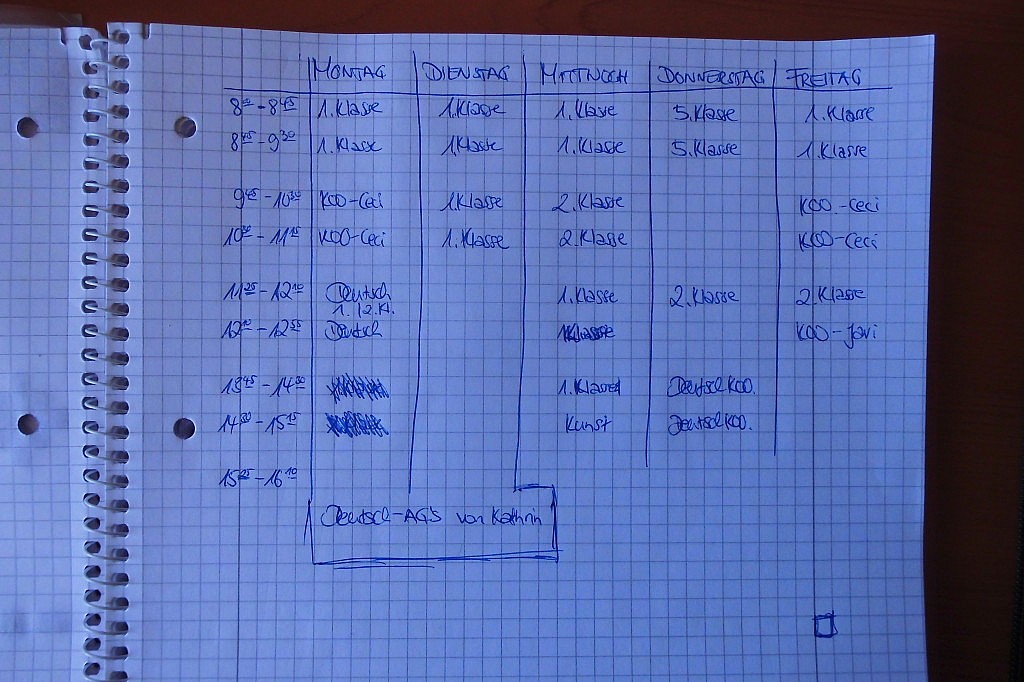 MONTAG DIENSTAG MITTWOCH DONNERSTAG FREITAG
8⁰⁰-8⁴⁵ 1.Klasse 1.Klasse 1.Klasse 5.Klasse 1.Klasse
8⁴⁵-9³⁰ 1.Klasse 1.Klasse 1.Klasse 5.Klasse 1.Klasse
9⁴⁵-10³⁰ KOO-Ceci 1.Klasse 2.Klasse KOO.-Ceci
10³⁰-11¹⁵ KOO-Ceci 1.Klasse 2.Klasse KOO-Ceci
11²⁵-12¹⁰ Deutsch 1.Klasse 2.Klasse 2.Klasse
1. /2.Kl.
12¹⁰-12⁵⁵ Deutsch KOO-Javi
13⁴⁵-14³⁰ 1.Klasse Deutsch KOO.
14³⁰-15¹⁵ Kunst Deutsch KOO.
15²⁵-16¹⁰
Deutsch-AG's von Kathrin